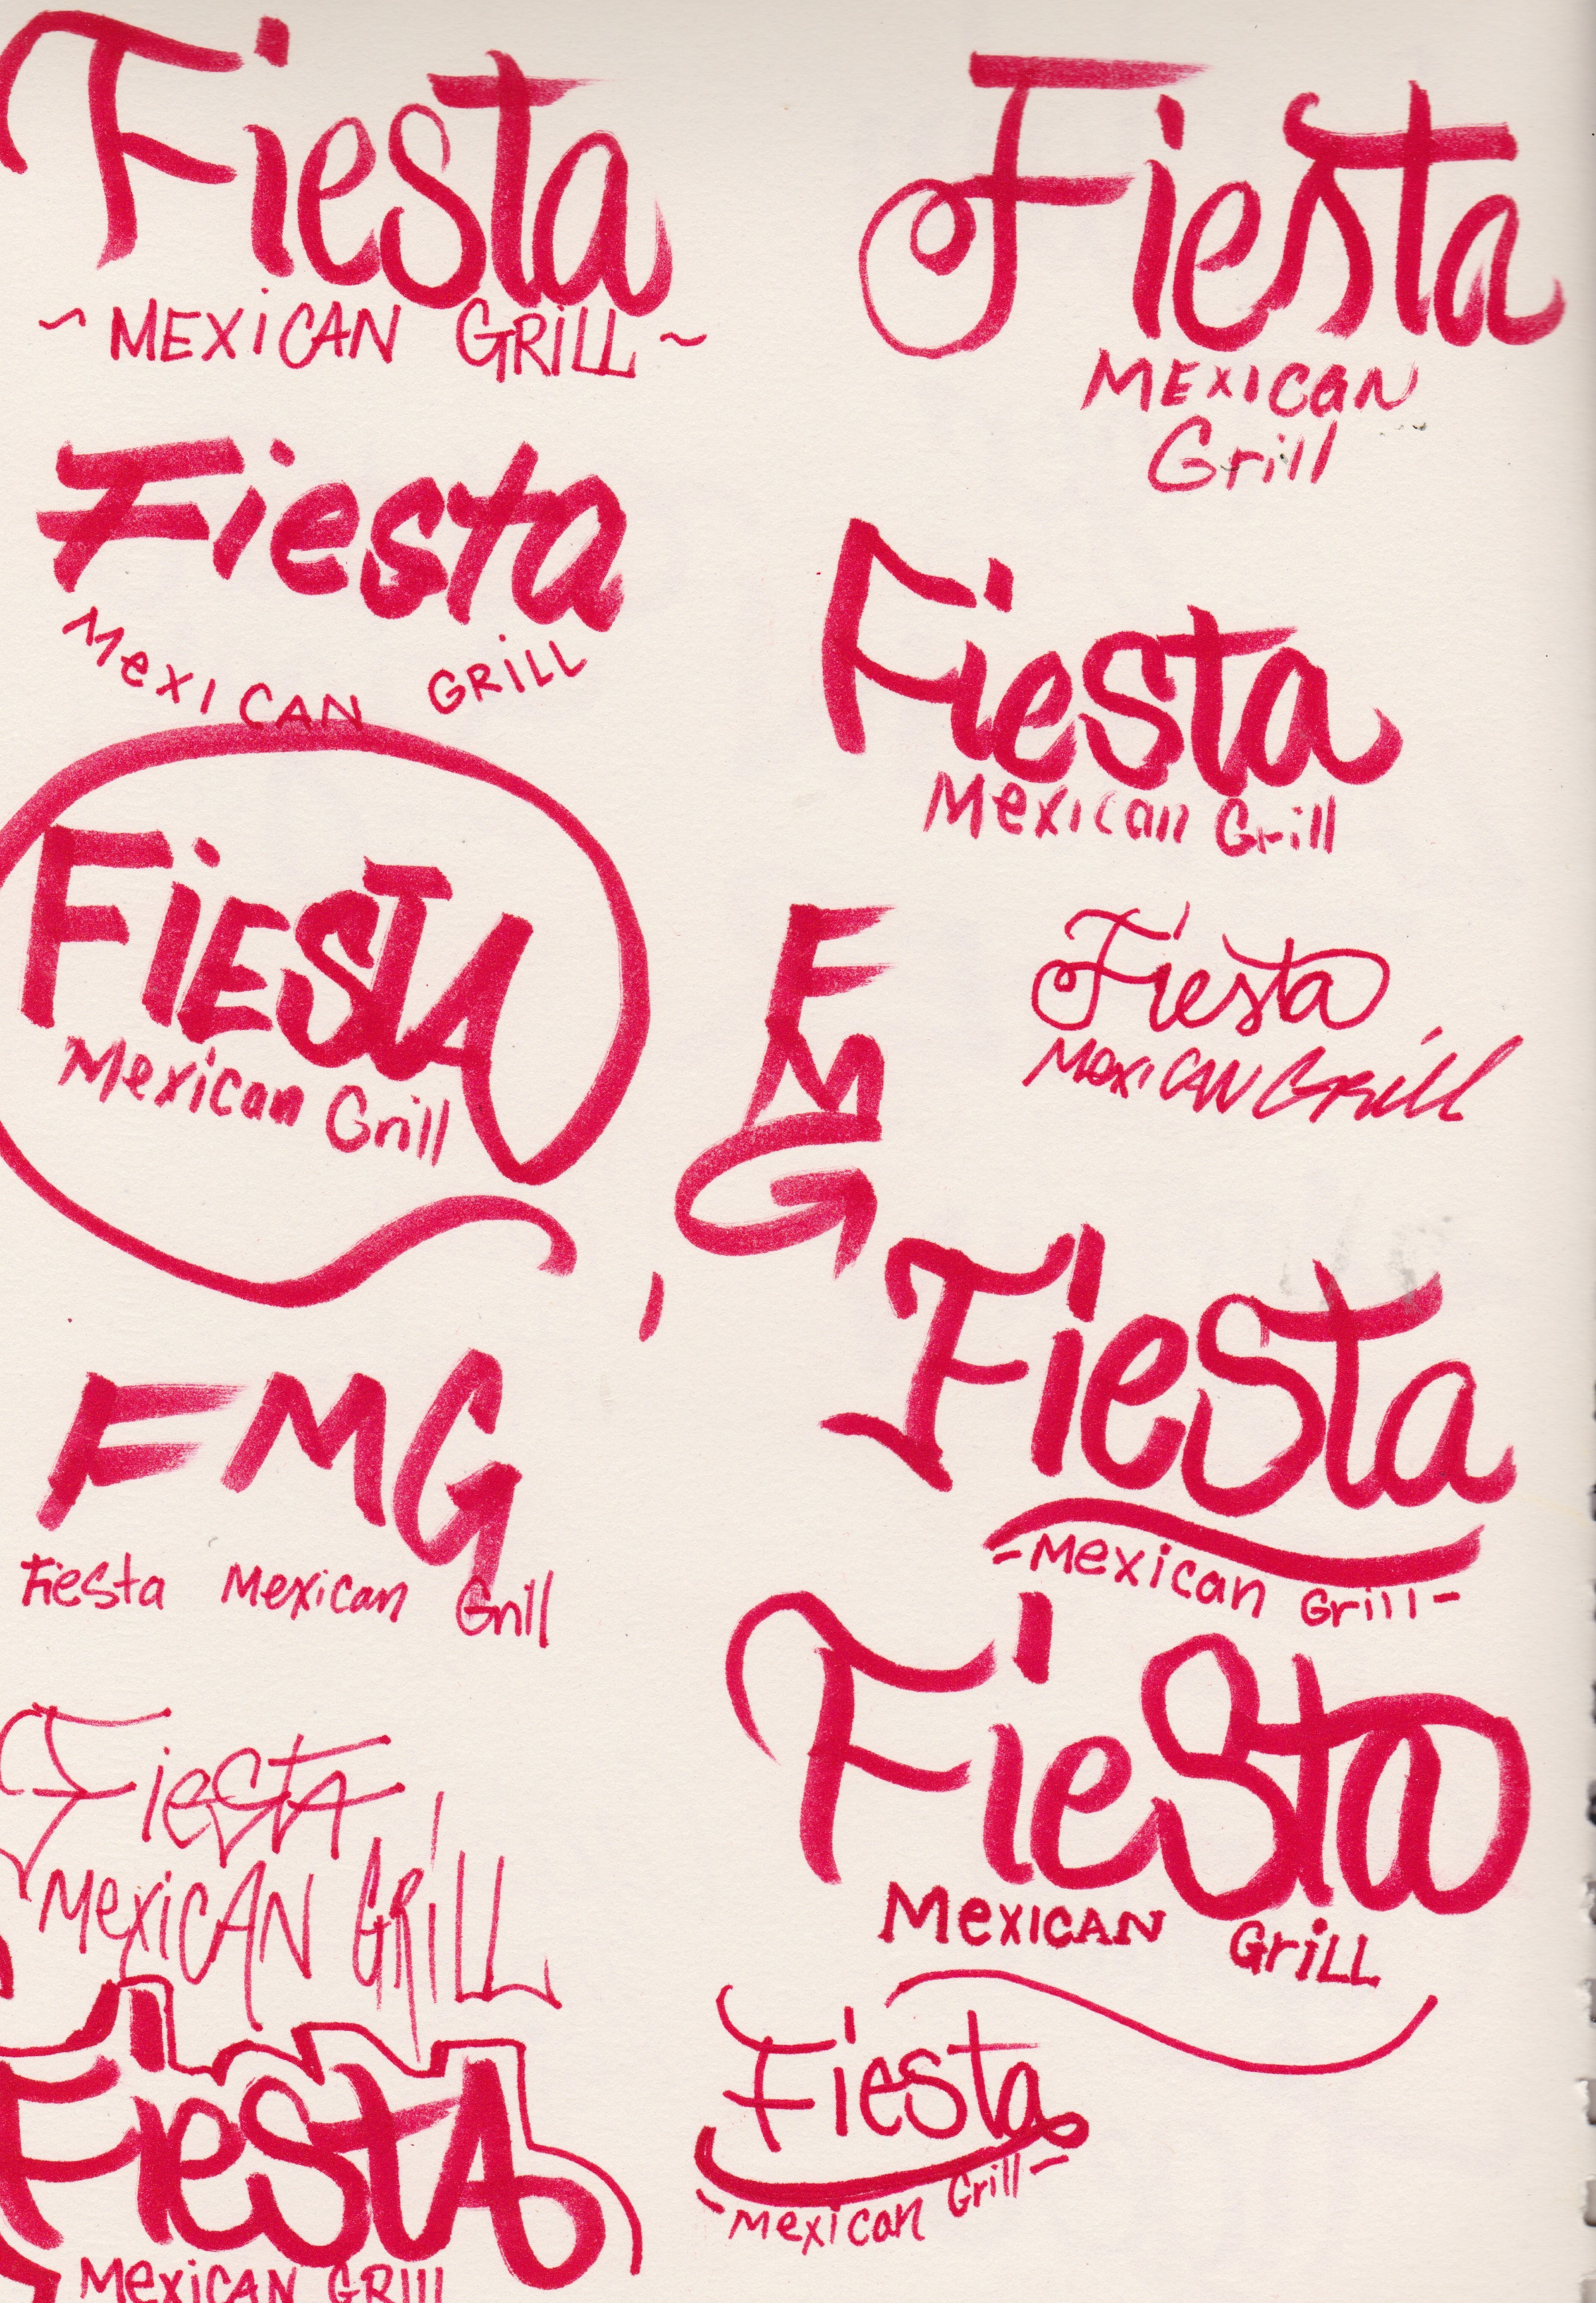 Fiesta
~ MEXiCAN GRiLL ~
Fiesta
MEXICan
Grill
Fiesta
MexICAN GRiLL
Fiesta
Mexican Grill
FiESTA
Mexican Grill
F
M
G
Fiesta
MexiCAN GRill
FMG
Fiesta Mexican Grill
Fiesta
-Mexican Grill-
Fiesta
MexiCAN GRiLL
Fiesta
MexICAN GriLL
FiesTA
MexiCAN GRIll
Fiesta
-Mexican Grill-